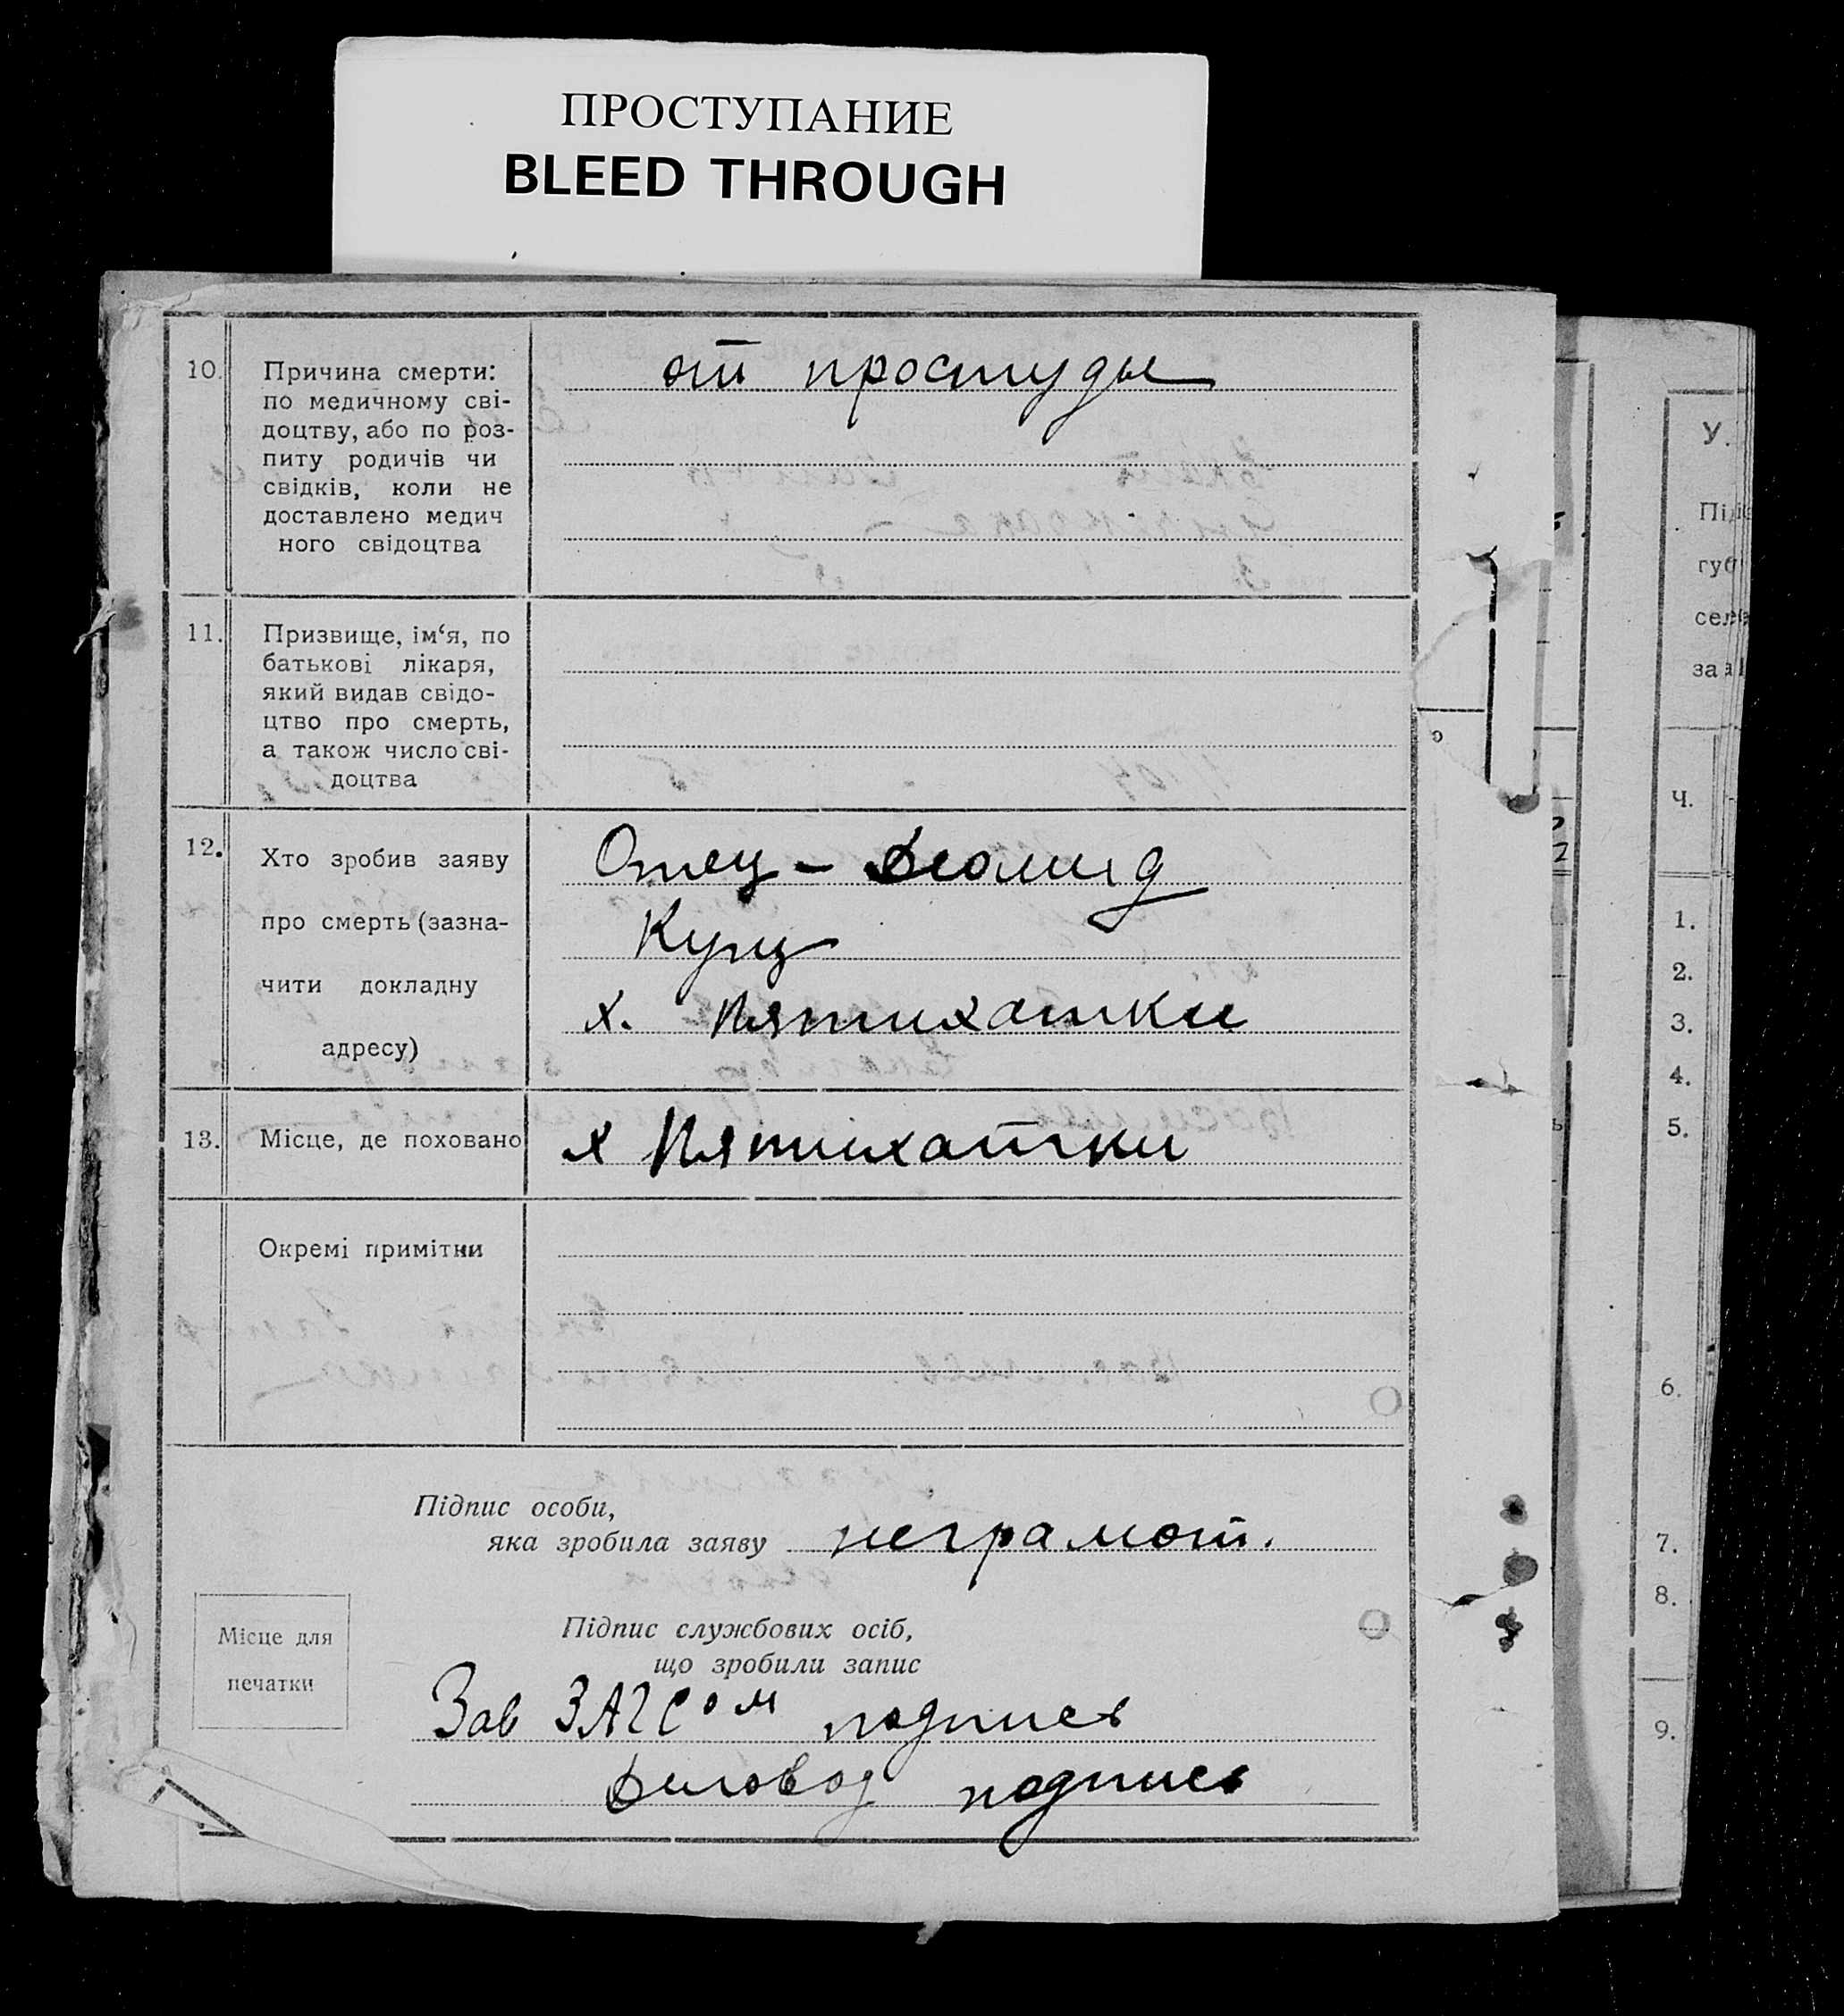 ПРОСТУПАНИЕ
BLEED THROUGH
10.
Причина смерти:
по медичному сві-
доцтву, або по роз-
питу родичів чи
свідків, коли не
доставлено медич
ного свідоцтва
от простуды
11.
Призвище, ім‘я, по
батькові лікаря,
який видав свідо-
цтво про смерть,
а також число сві-
доцтва
12.
Хто зробив заяву
про смерть (зазна-
чити докладну
адресу)
Отец – Диомид
Куц
х. Пятихатки
13.
Місце, де поховано
х Пятихатки
Окремі примітки
Підпис особи,
яка зробила заяву неграмот.
Місце для
печатки
Підпис службових осіб,
що зробили запис
Зав ЗАГСом подпись
Диловод подпись
У.
Під
губ
сел
за
Ч.
1.
2.
3.
4.
5.
6.
7.
8.
9.